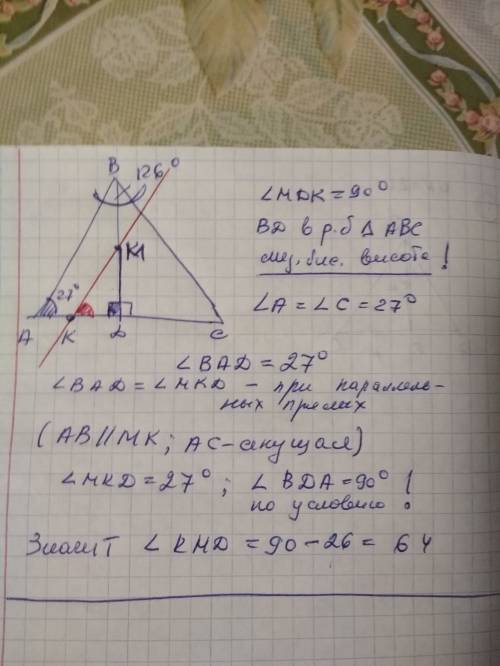 B
126°
∠MDK = 90°
BD в р.б Δ ABC
M
мед. бис. высота !
27°
∠A = ∠C = 27°
A K D C
∠BAD = 27°
∠BAD = ∠MKD – при параллель-
ных прямых
(AB∥MK; AC-секущая)
∠MKD = 27°; ∠BDA = 90° !
по условию
Значит ∠KMD = 90 – 26 = 64